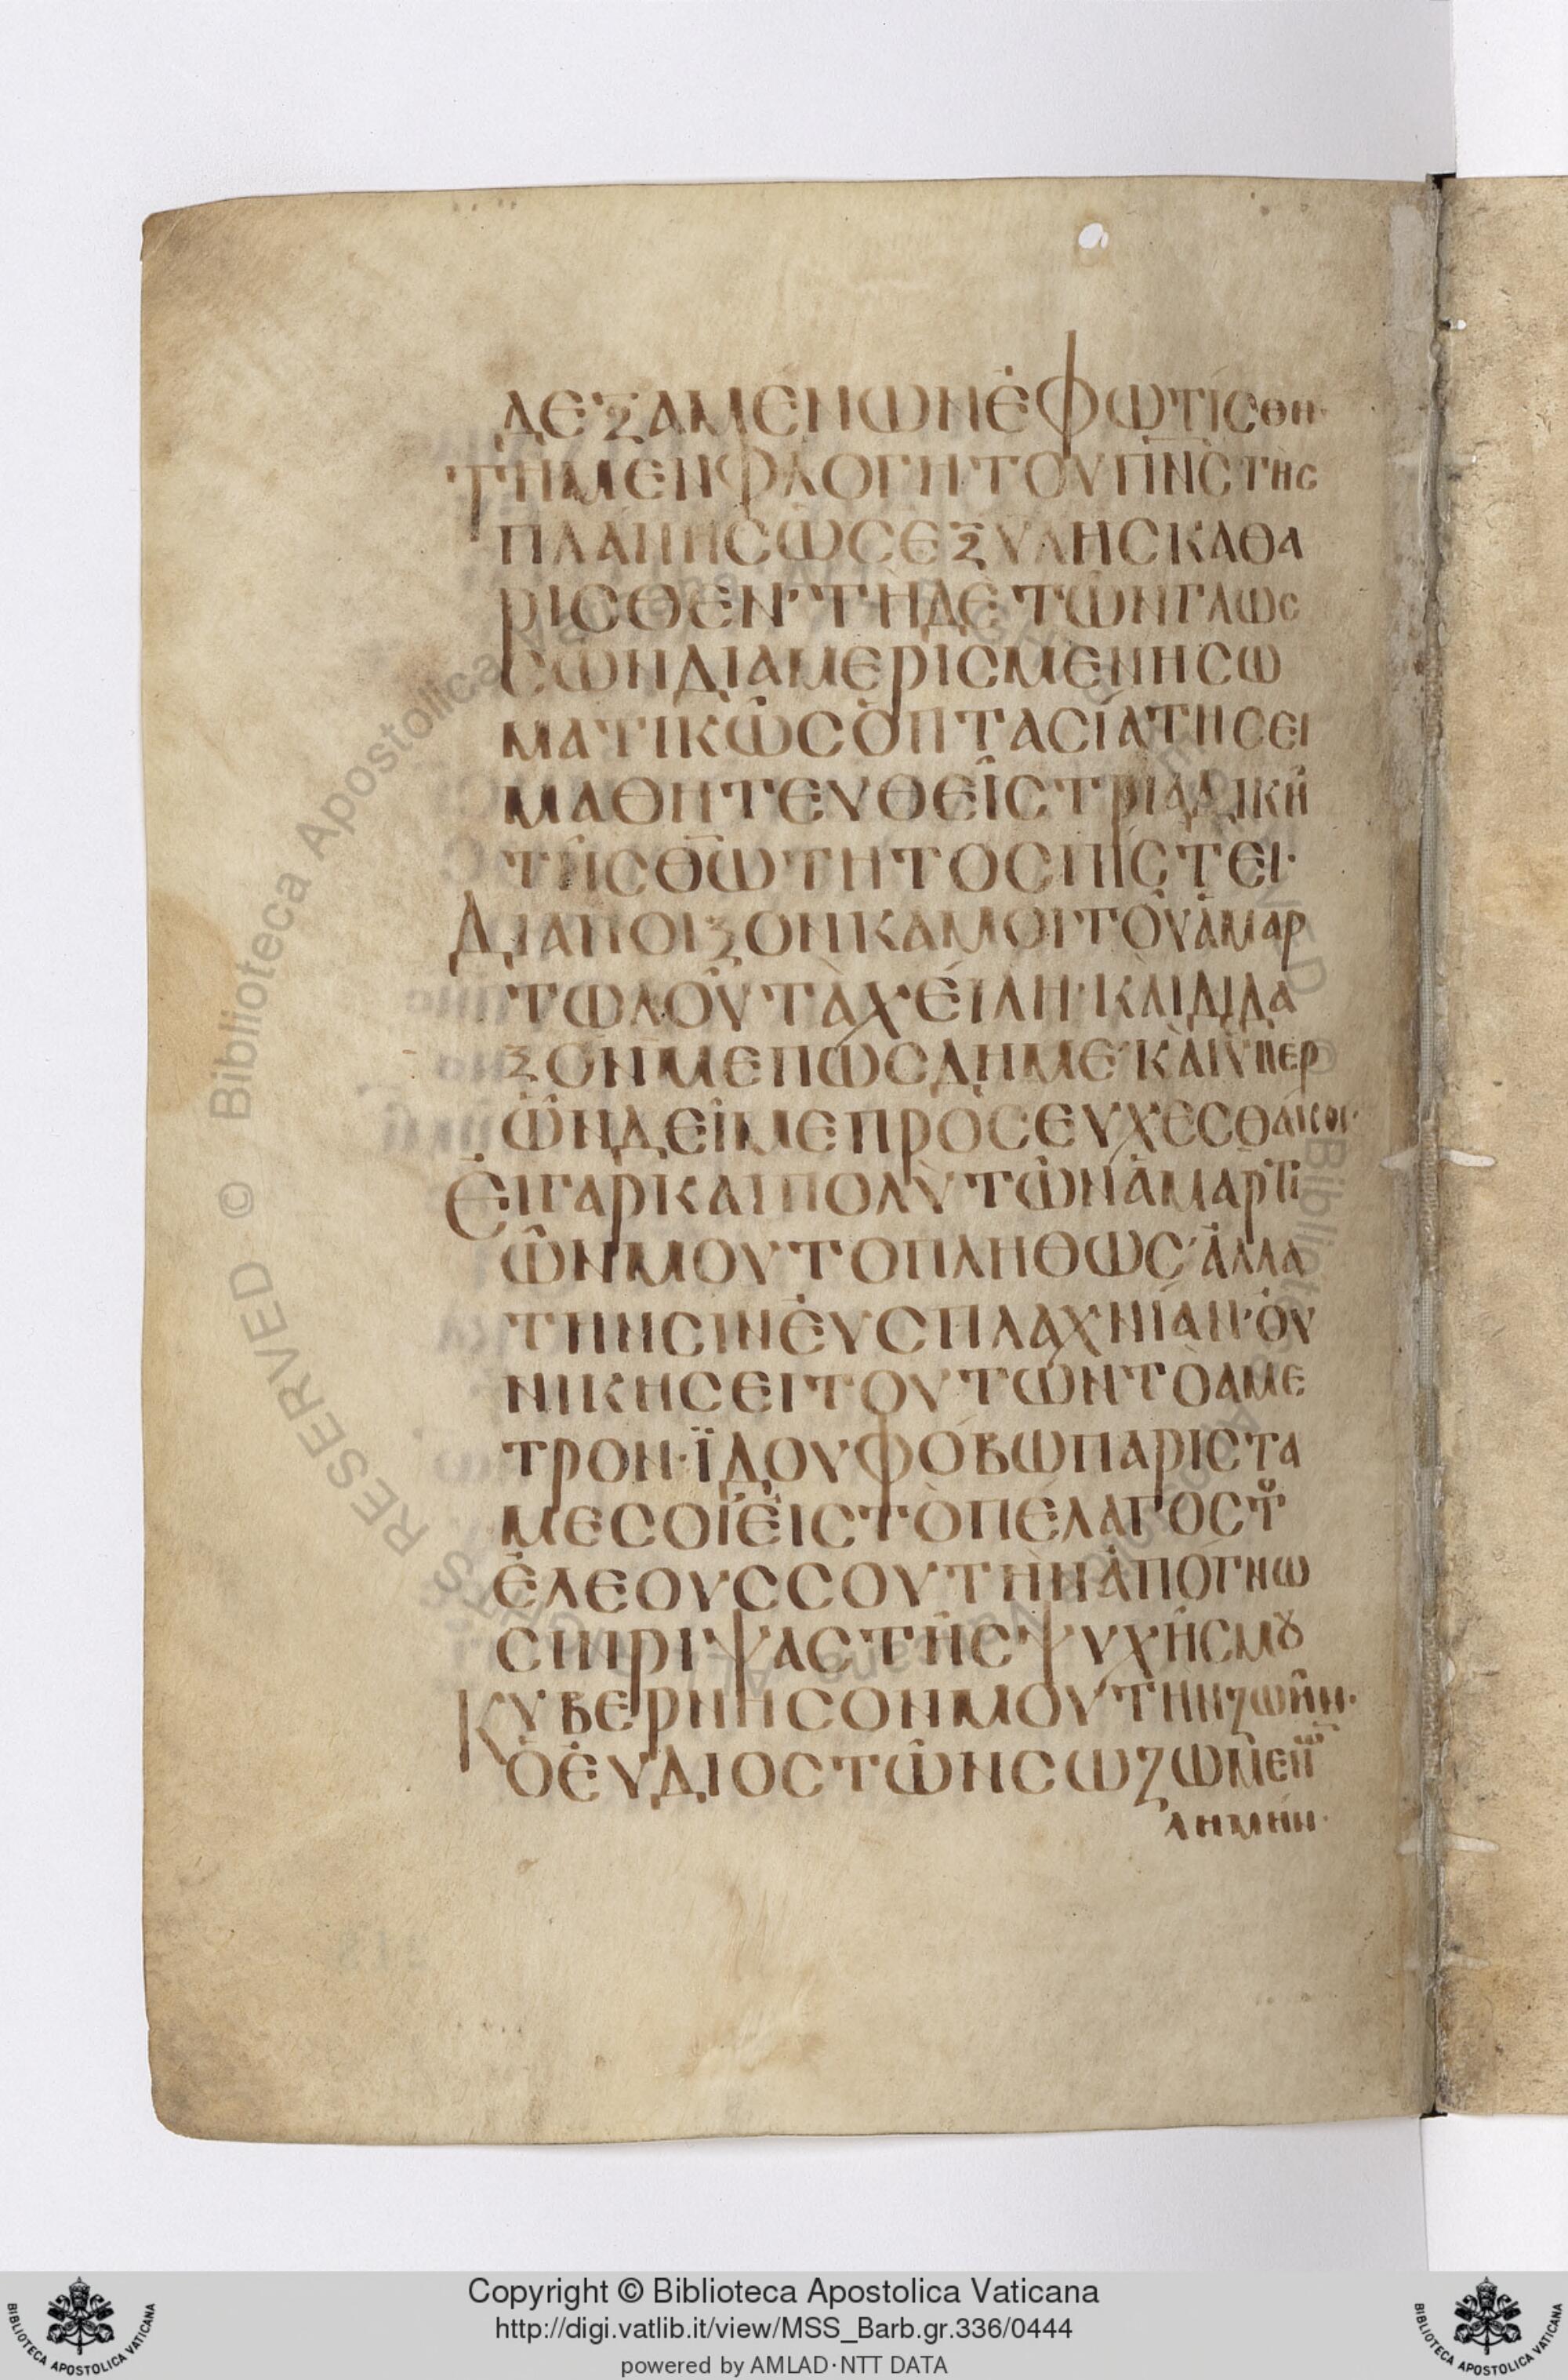 ΔΕΞΑΜΕΝΩΝἘΦΩΤΙΣΘΗ·
ΤΗΜΕΝΦΛΟΓΗΤΟΥΠΝΣΤΗΣ
ΠΛΑΝΗΣΩΣΕΞΥΛΗΣΚΑΘΑ
ΡΙΣΘΕΝ·ΤΗΔΕΤΩΝΓΛΩΣ
ΣΩΝΔΙΑΜΕΡΙΣΜΕΝΗΣΩ
ΜΑΤΙΚΩΣὈΠΤΑΣΙΑΤΗΣΕΙ
ΜΑΘΗΤΕΥΘΕΙΣΤΡΙΑΔΙΚΗ
ΤΗΣΘΩΤΗΤΟΣΠΙΣΤΕΙ·
ΔΙΑΠΟΙΞΟΝΚΑΜΟΙΤΟΥἉΜΑΡ
ΤΩΛΟΥΤΑΧΕΙΛΗ·ΚΑΙΔΙΔΑ
ΞΟΝΜΕΠΩΣΔΗΜΕ·ΚΑΙΥΠΕΡ
ΩΝΔΕΙΜΕΠΡΟΣΕΥΧΕΣΘΑΙΚΟΙ·
ἘΙΓΑΡΚΑΙΠΟΛΥΤΩΝἉΜΑΡΤΙ
ΩΝΜΟΥΤΟΠΛΗΘΩΣ·ἈΛΛΑ
ΤΗΝΣΙΝἘΥΣΠΛΑΧΝΙΑΝ·ὈΥ
ΝΙΚΗΣΕΙΤΟΥΤΩΝΤΟΑΜΕ
ΤΡΟΝ·ΪΔΟΥΦΟΒΩΠΑΡΙΣΤΑ
ΜΕΣΟΙἘΙΣΤΟΠΕΛΑΓΟΣΤȢ
ἘΛΕΟΥΣΣΟΥΤΗΝἈΠΟΓΝΩ
ΣΙΝΡΙΨΑΣΤΗΣΨΥΧΗΣΜȢ
ΚΥΒΕΡΝΗΣΟΝΜΟΥΤΗΝΖΩΗΝ·
ὉΕΥΔΙΟΣΤΩΝΣΩΖΩΜΕΝ
ΛΗΜΗΝ·
Copyright © Biblioteca Apostolica Vaticana
http://digi.vatlib.it/view/MSS_Barb.gr.336/0444
powered by AMLAD·NTT DATA
BIBLIOTECA APOSTOLICA VATICANA
BIBLIOTECA APOSTOLICA VATICANA